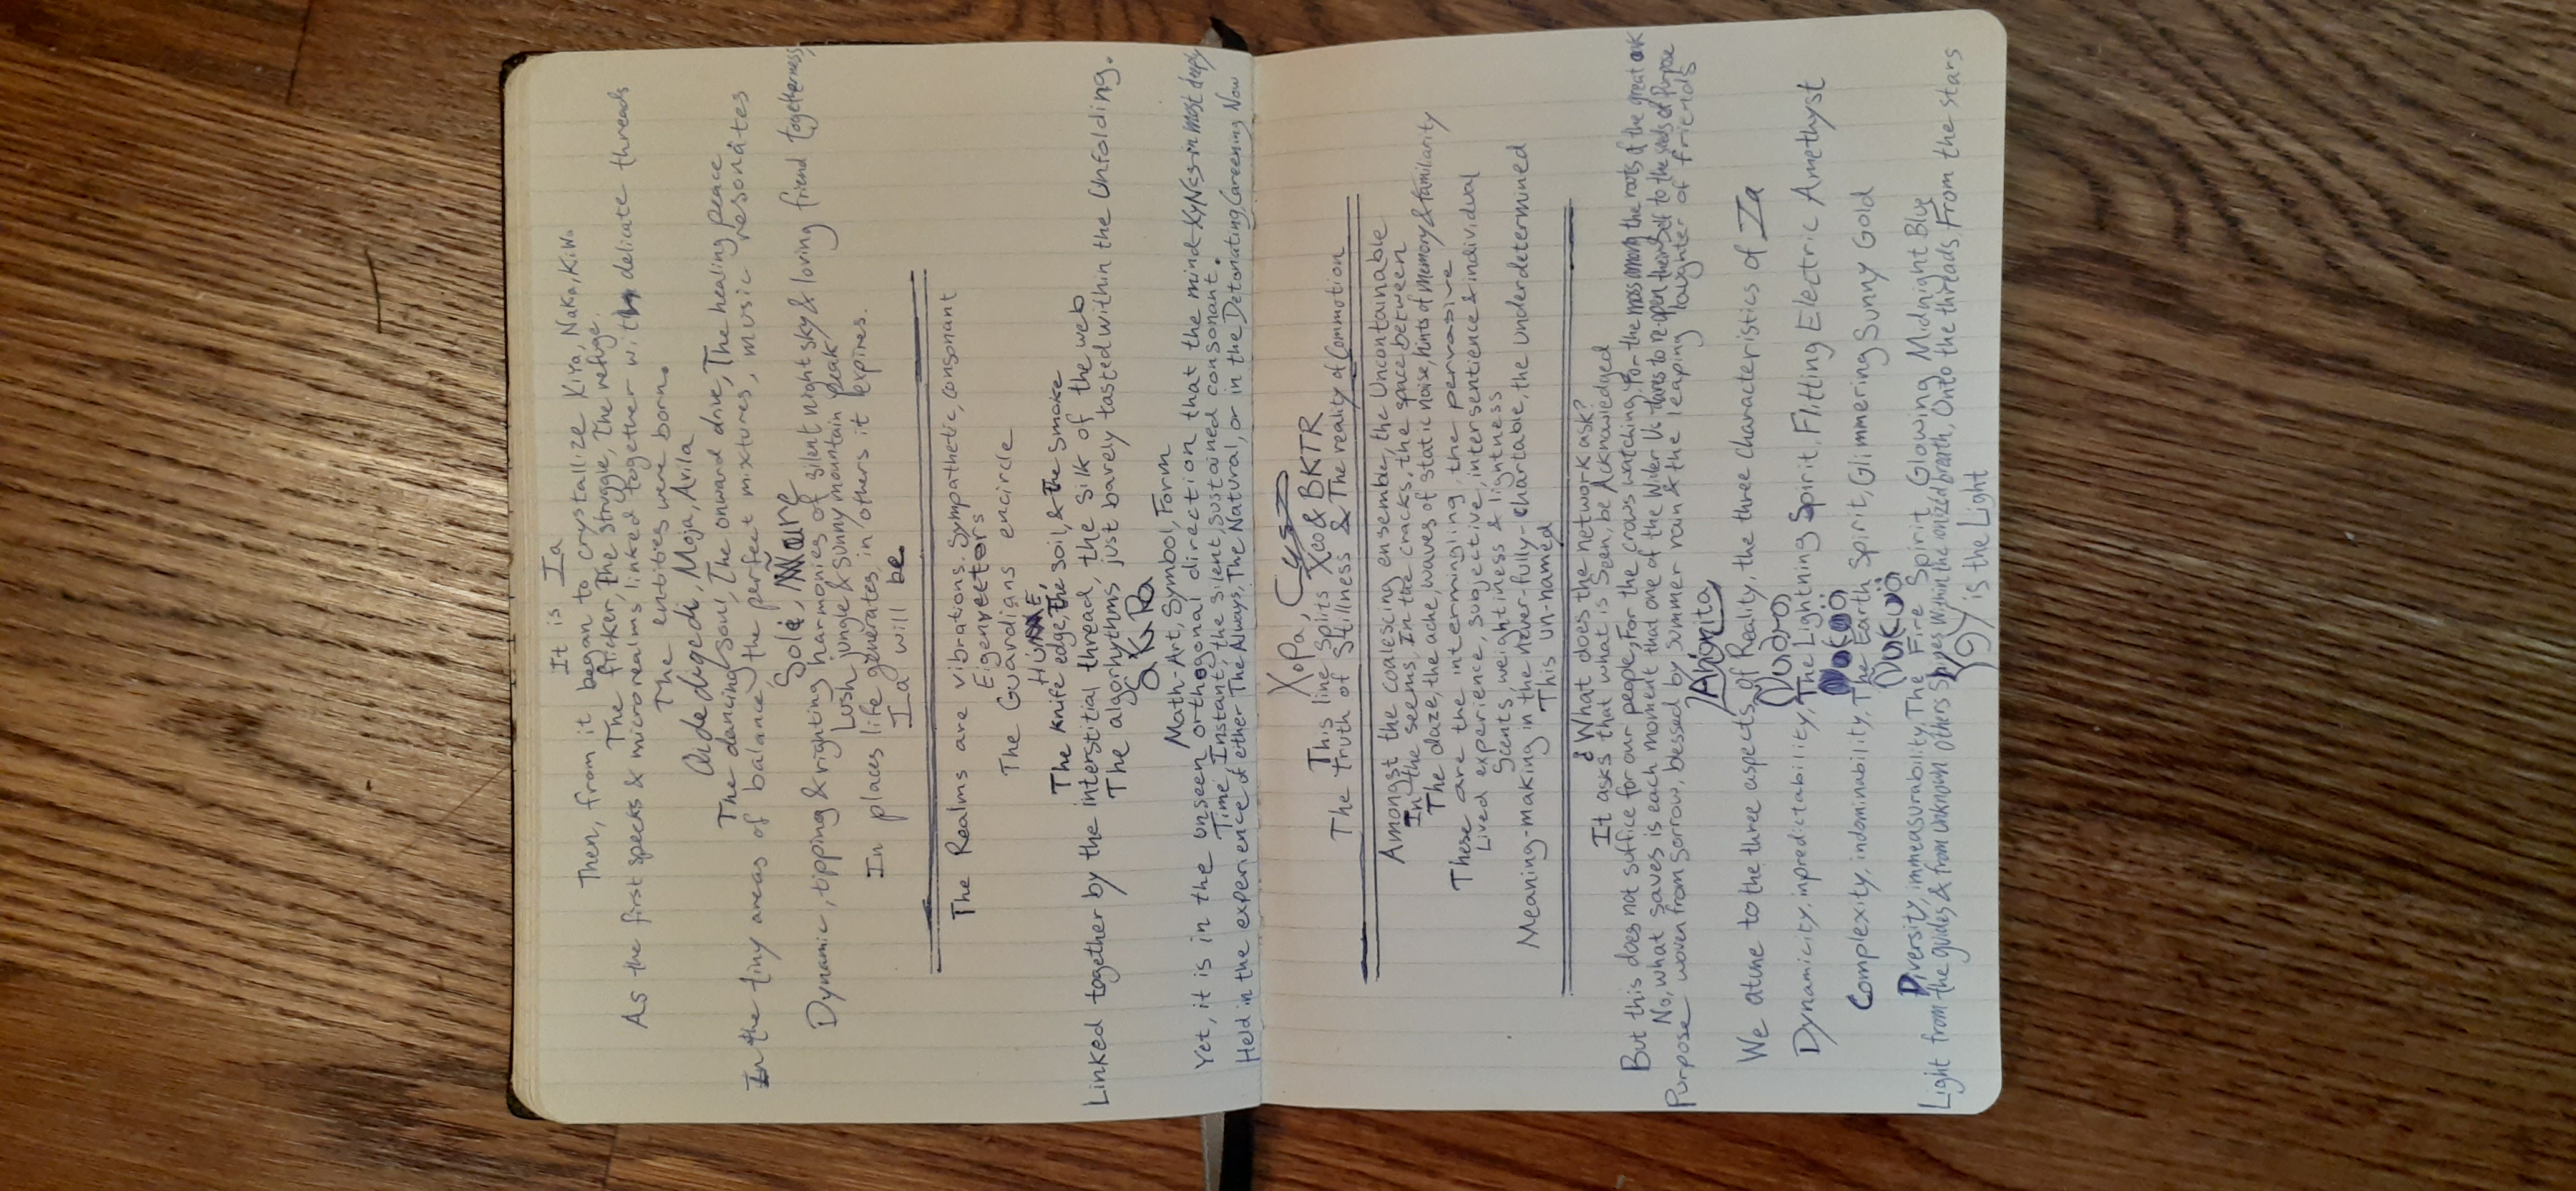 It is Ia
Then, from it began to crystallize Kiya, Naka, KiWa
The flicker, The struggle, The refuge.
As the first specks & microrealms linked together with delicate threads
The entities were born.
Moja, Avila
The dancing soul, The onward drive, The healing peace.
In the tiny areas of balance, the perfect mixtures, music resonates
Sole,
Dynamic, tipping & righting harmonies of silent night sky & loving friend togetherness,
Lush jungle & sunny mountain peak
In places life generates, in others it expires.
Ia will be.
The Realms are vibrations. Sympathetic, consonant
Eigenvectors
The Guardians encircle
The Knife edge, The soil, & The smoke
Linked together by the interstitial thread, the silk of the web
The algorhythms just barely tasted within the Unfolding.
Math-Art, Symbol, Form
Yet, it is in the unseen orthogonal direction that the mind in most deeply
Time, Instant, the silent, sustained consonant.
Held in the experience of either The Always, The Natural, or in the Detonating, Careening Now
XoPa,
This line splits Xeo & BKTR
The Truth of Stillness & The reality of Commotion
Amongst the coalescing ensemble, the Uncontainable
In the seems, In the cracks, the space between
The daze, the ache, waves of static noise, hints of memory & familiarity
These are the intermingling, the pervasive
Lived experience, subjective, intersentience & individual
Scents, weightiness & lightness
Meaning-making in the never-fully-chartable, the underdetermined
This un-named
¿What does the network ask?
It asks that what is Seen, be Acknowledged
But this does not suffice for our people, For the crows watching, For the moss among the roots of the great oak
No, what saves is each moment that one of the Wider Us dares to re-open theirself to the seeds of Purpose
Purpose woven from sorrow, blessed by summer rain & the leaping laughter of friends
We atune to the three aspects of Reality, the three characteristics of Ia
Dynamicity, inpredictability, The Lightning Spirit, Flitting Electric Amethyst
Complexity, indominability, The Earth Spirit, Glimmering Sunny Gold
Diversity, immeasurability, The Fire Spirit, Glowing Midnight Blue
Light from the guides & from unknown others Shines within the ionized breath, Onto the threads, From the stars
is the Light